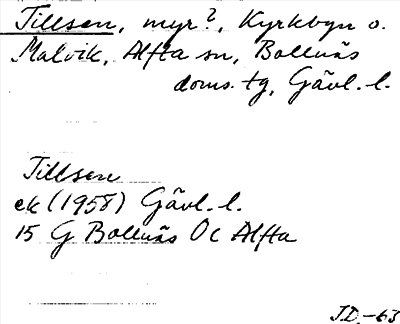 Tillsen, myr?, Kyrkbyn o.
Malvik, Alfta sn, Bollnäs
doms. tg, Gävl. l.
Tillsen
ek (1958) Gävl. l.
15 G Bollnäs Öc Alfta
J.D.-63